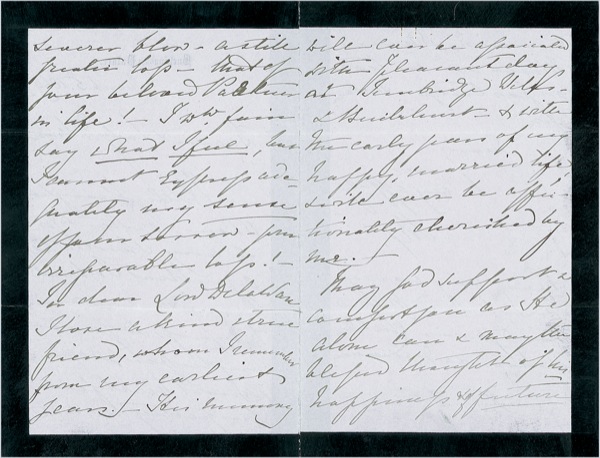 severer blow – a still
greater loss – that of
your beloved Partner
in life! – I wd fain
say what I feel, but
I cannot express ade-
quately my sense
of your sorrow – your
irreparable loss! –
In dear Lord Delawarr
I lose a kind & true
friend, whom I remember
from my earliest
years. – His memory
will ever be associated
with pleasant days
at Tunbridge Wells –
& Buckhurst – & with
the early years of my
happy, married life,
& will ever be affec-
tionately cherished by
me. –
May God support &
comfort you as He
alone can & may the
blessed thought of his
happiness & future